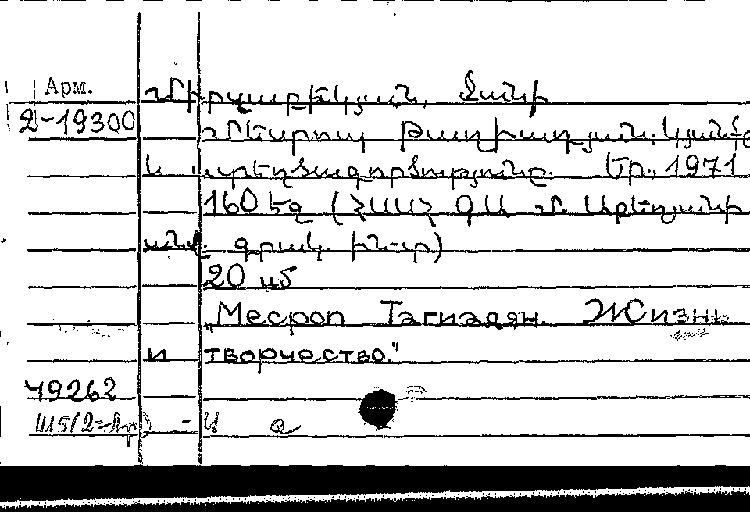 Арм.
Միրզաբեկյան, Ջանի
2-19300
Մեսրոպ Թաղիադյան. կյանքը
և ստեղծագործությունը. Եր., 1971
160 էջ (ՀՍՍՀ ԳԱ Մ. Աբեղյանի
անվ. գրակ. ինստ)
20 սմ
„Месроп Тагиадян. Жизнь
и творчество."
49262